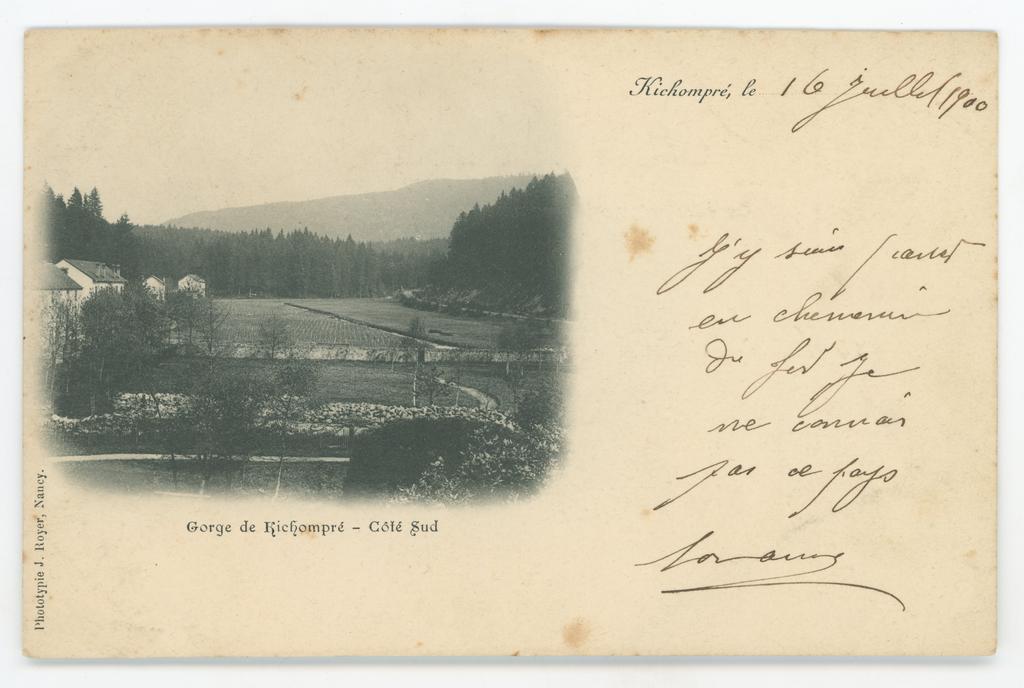 Kichompré, le 16 Juillet 1900
J'y suis passé
en chemin
de fer Je
ne connais
pas ce pays
Gorge de Kichompré - Côté Sud
Phototypie J. Royer, Nancy.